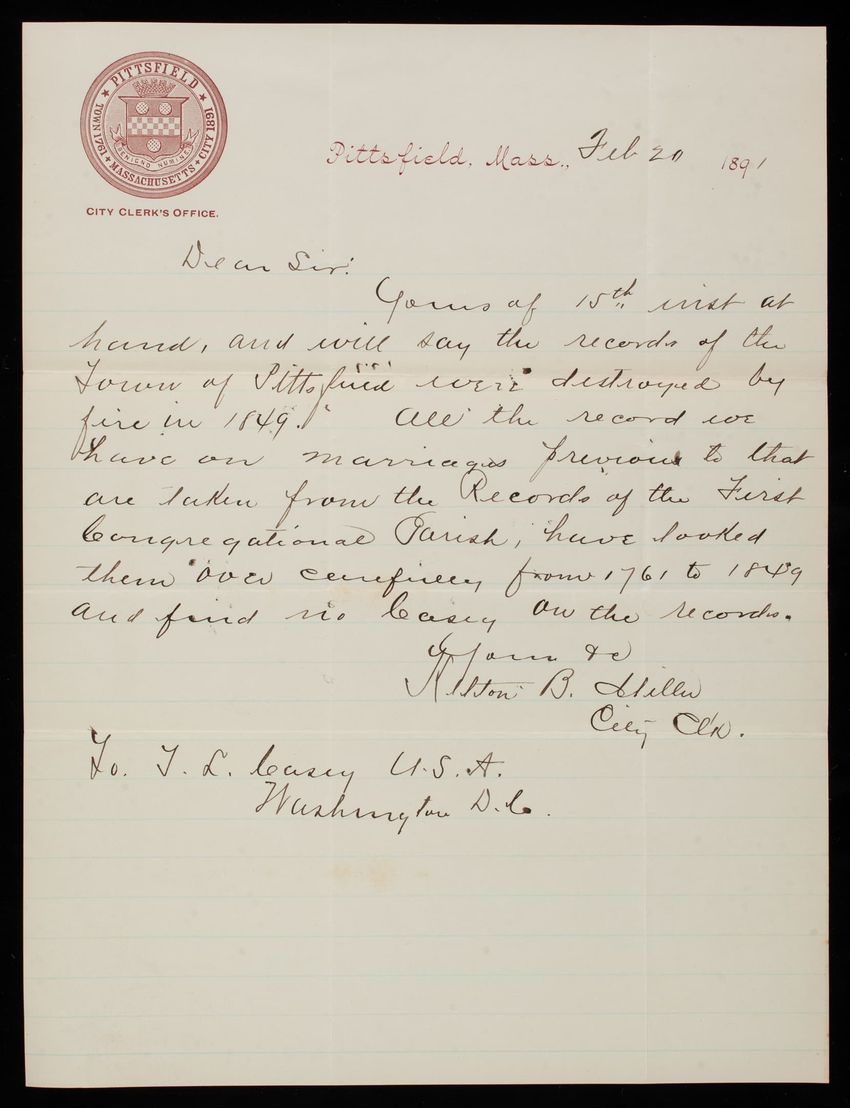 PITTSFIELD
TOWN 1761
CITY 1891
MASSACHUSETTS
BENIGNO NUMINE
CITY CLERK'S OFFICE.
Pittsfield, Mass., Feb 20 1891
Dear Sir:
Yours of 15th inst at
hand, and will say the records of the
Town of Pittsfield were destroyed by
fire in 1849. All the record we
have on marriages previous to that
are taken from the Records of the First
Congregational Parish, have looked
them over carefully from 1761 to 1849
and find no Casey on the records.
Yours &c
B.
City Clk.
To. T. L. Casey U.S.A.
Washington D.C.